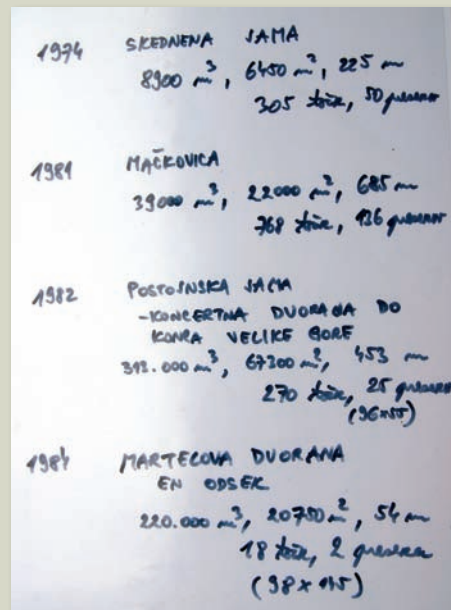 1974 SKEDNENA JAMA
8900 m³, 6450 m², 225 m
305 točk, 50 presekov
1981 MAČKOVICA
39000 m³, 22000 m², 685 m
768 točk, 136 presekov
1982 POSTOJNSKA JAMA
-KONCERTNA DVORANA DO
KONCA VELIKE GORE
312.000 m³, 67200 m², 453 m
270 točk, 25 presekov
(96×55)
1984 MARTELOVA DVORANA
EN ODSEK
220.000 m³, 20750 m², 54 m
18 točk, 2 preseka
(98 × 145)